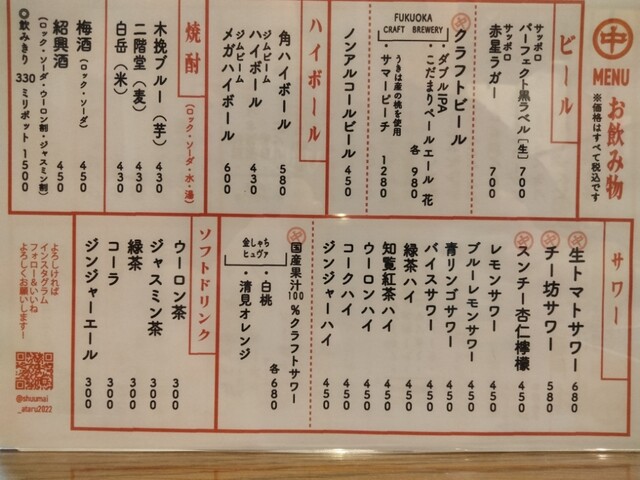 中
MENU
お飲み物
※価格はすべて税込です
ビール
サッポロ
パーフェクト黒ラベル［生］ 700
サッポロ
赤星ラガー 700
中 クラフトビール
FUKUOKA
CRAFT BREWERY
・ダブルIPA
・こだまりペールエール 花
各 980
・サマーピーチ 1280
うきは産の桃を使用
ノンアルコールビール 450
ハイボール
角ハイボール 580
ジムビーム
ハイボール 430
ジムビーム
メガハイボール 600
焼酎
(ロック・ソーダ・水・湯)
木挽ブルー（芋） 430
二階堂（麦） 430
白岳（米） 430
梅酒（ロック・ソーダ） 450
紹興酒 450
(ロック・ソーダ・ウーロン割・ジャスミン割)
◎飲みきり 330 ミリポット 1500
サワー
中 生トマトサワー 680
中 チー坊サワー 580
中 スンチー杏仁檸檬 450
レモンサワー 450
ブルーレモンサワー 450
青リンゴサワー 450
バイスサワー 450
緑茶ハイ 450
知覧紅茶ハイ 450
ウーロンハイ 450
コークハイ 450
ジンジャーハイ 450
中 国産果汁100%クラフトサワー
金しゃち
ヒュヴァ
・白桃
・清見オレンジ
各 680
ソフトドリンク
ウーロン茶 300
ジャスミン茶 300
緑茶 300
コーラ 300
ジンジャーエール 300
よろしければ
インスタグラム
フォロー＆いいね
よろしくお願いします！
@shuumai
_ataru2022